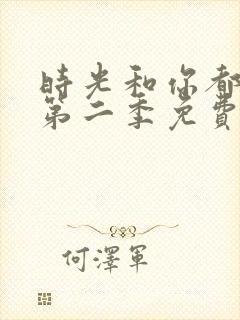 時光和你都
第二季免費
何澤軍